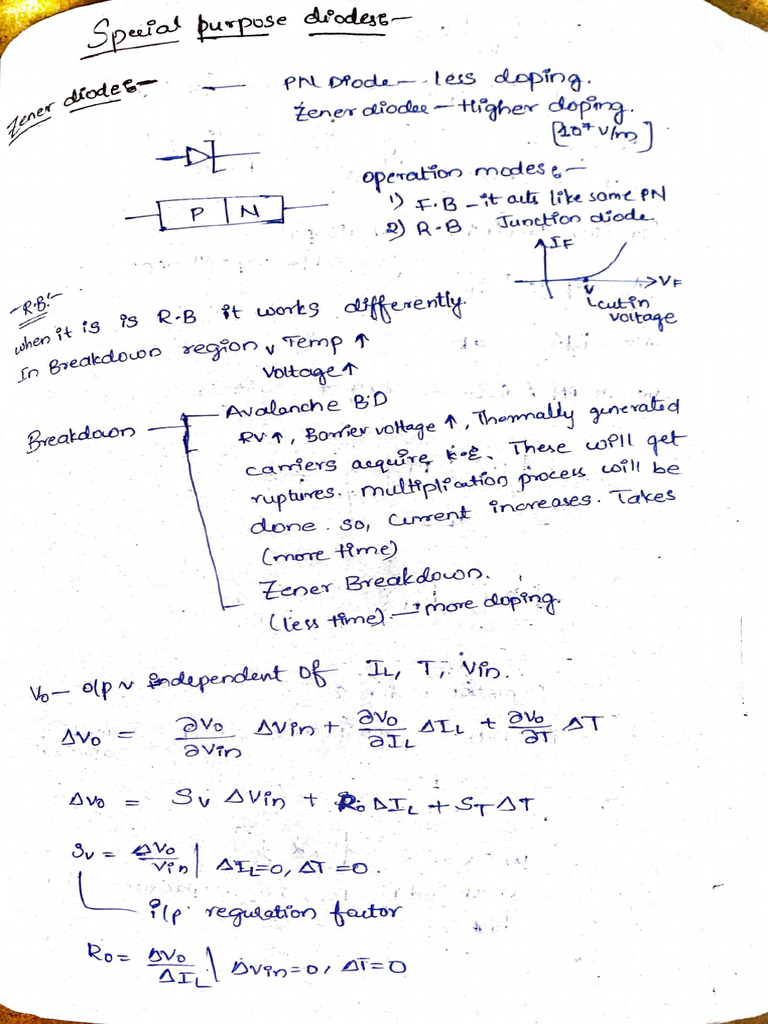 Special purpose diodes:-
Zener diodes:- — PN Diode - less doping.
Zener diodes - Higher doping.
[10⁷ V/m]
P N
operation modes:-
1) F.B - it acts like same PN
2) R.B Junction diode
IF
VF
cutin
voltage
-R.B:-
when it is is R.B it works differently.
In Breakdown region, Temp ↑
Voltage ↑
Breakdown
Avalanche BD
RV ↑, Barrier voltage ↑, Thermally generated
carriers acquire K.E. These will get
ruptures. multiplication process will be
done. so, current increases. Takes
(more time)
Zener Breakdown.
(less time) → more doping.
Vo - o/p v independent of IL, T, Vin.
ΔVo = ∂Vo/∂Vin ΔVin + ∂Vo/∂IL ΔIL + ∂Vo/∂T ΔT
ΔVo = Sv ΔVin + Ro ΔIL + ST ΔT
Sv = ΔVo/Vin | ΔIL=0, ΔT=0.
i/p regulation factor
Ro = ΔVo/ΔIL | ΔVin=0, ΔT=0